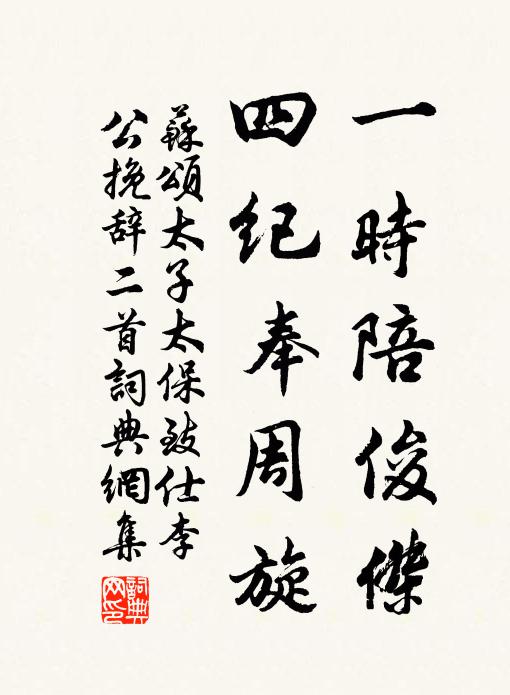 一時陪俊傑
四紀奉周旋
蘇頌太子太保致仕李
公挽辞二首詞典網集
詞典网印